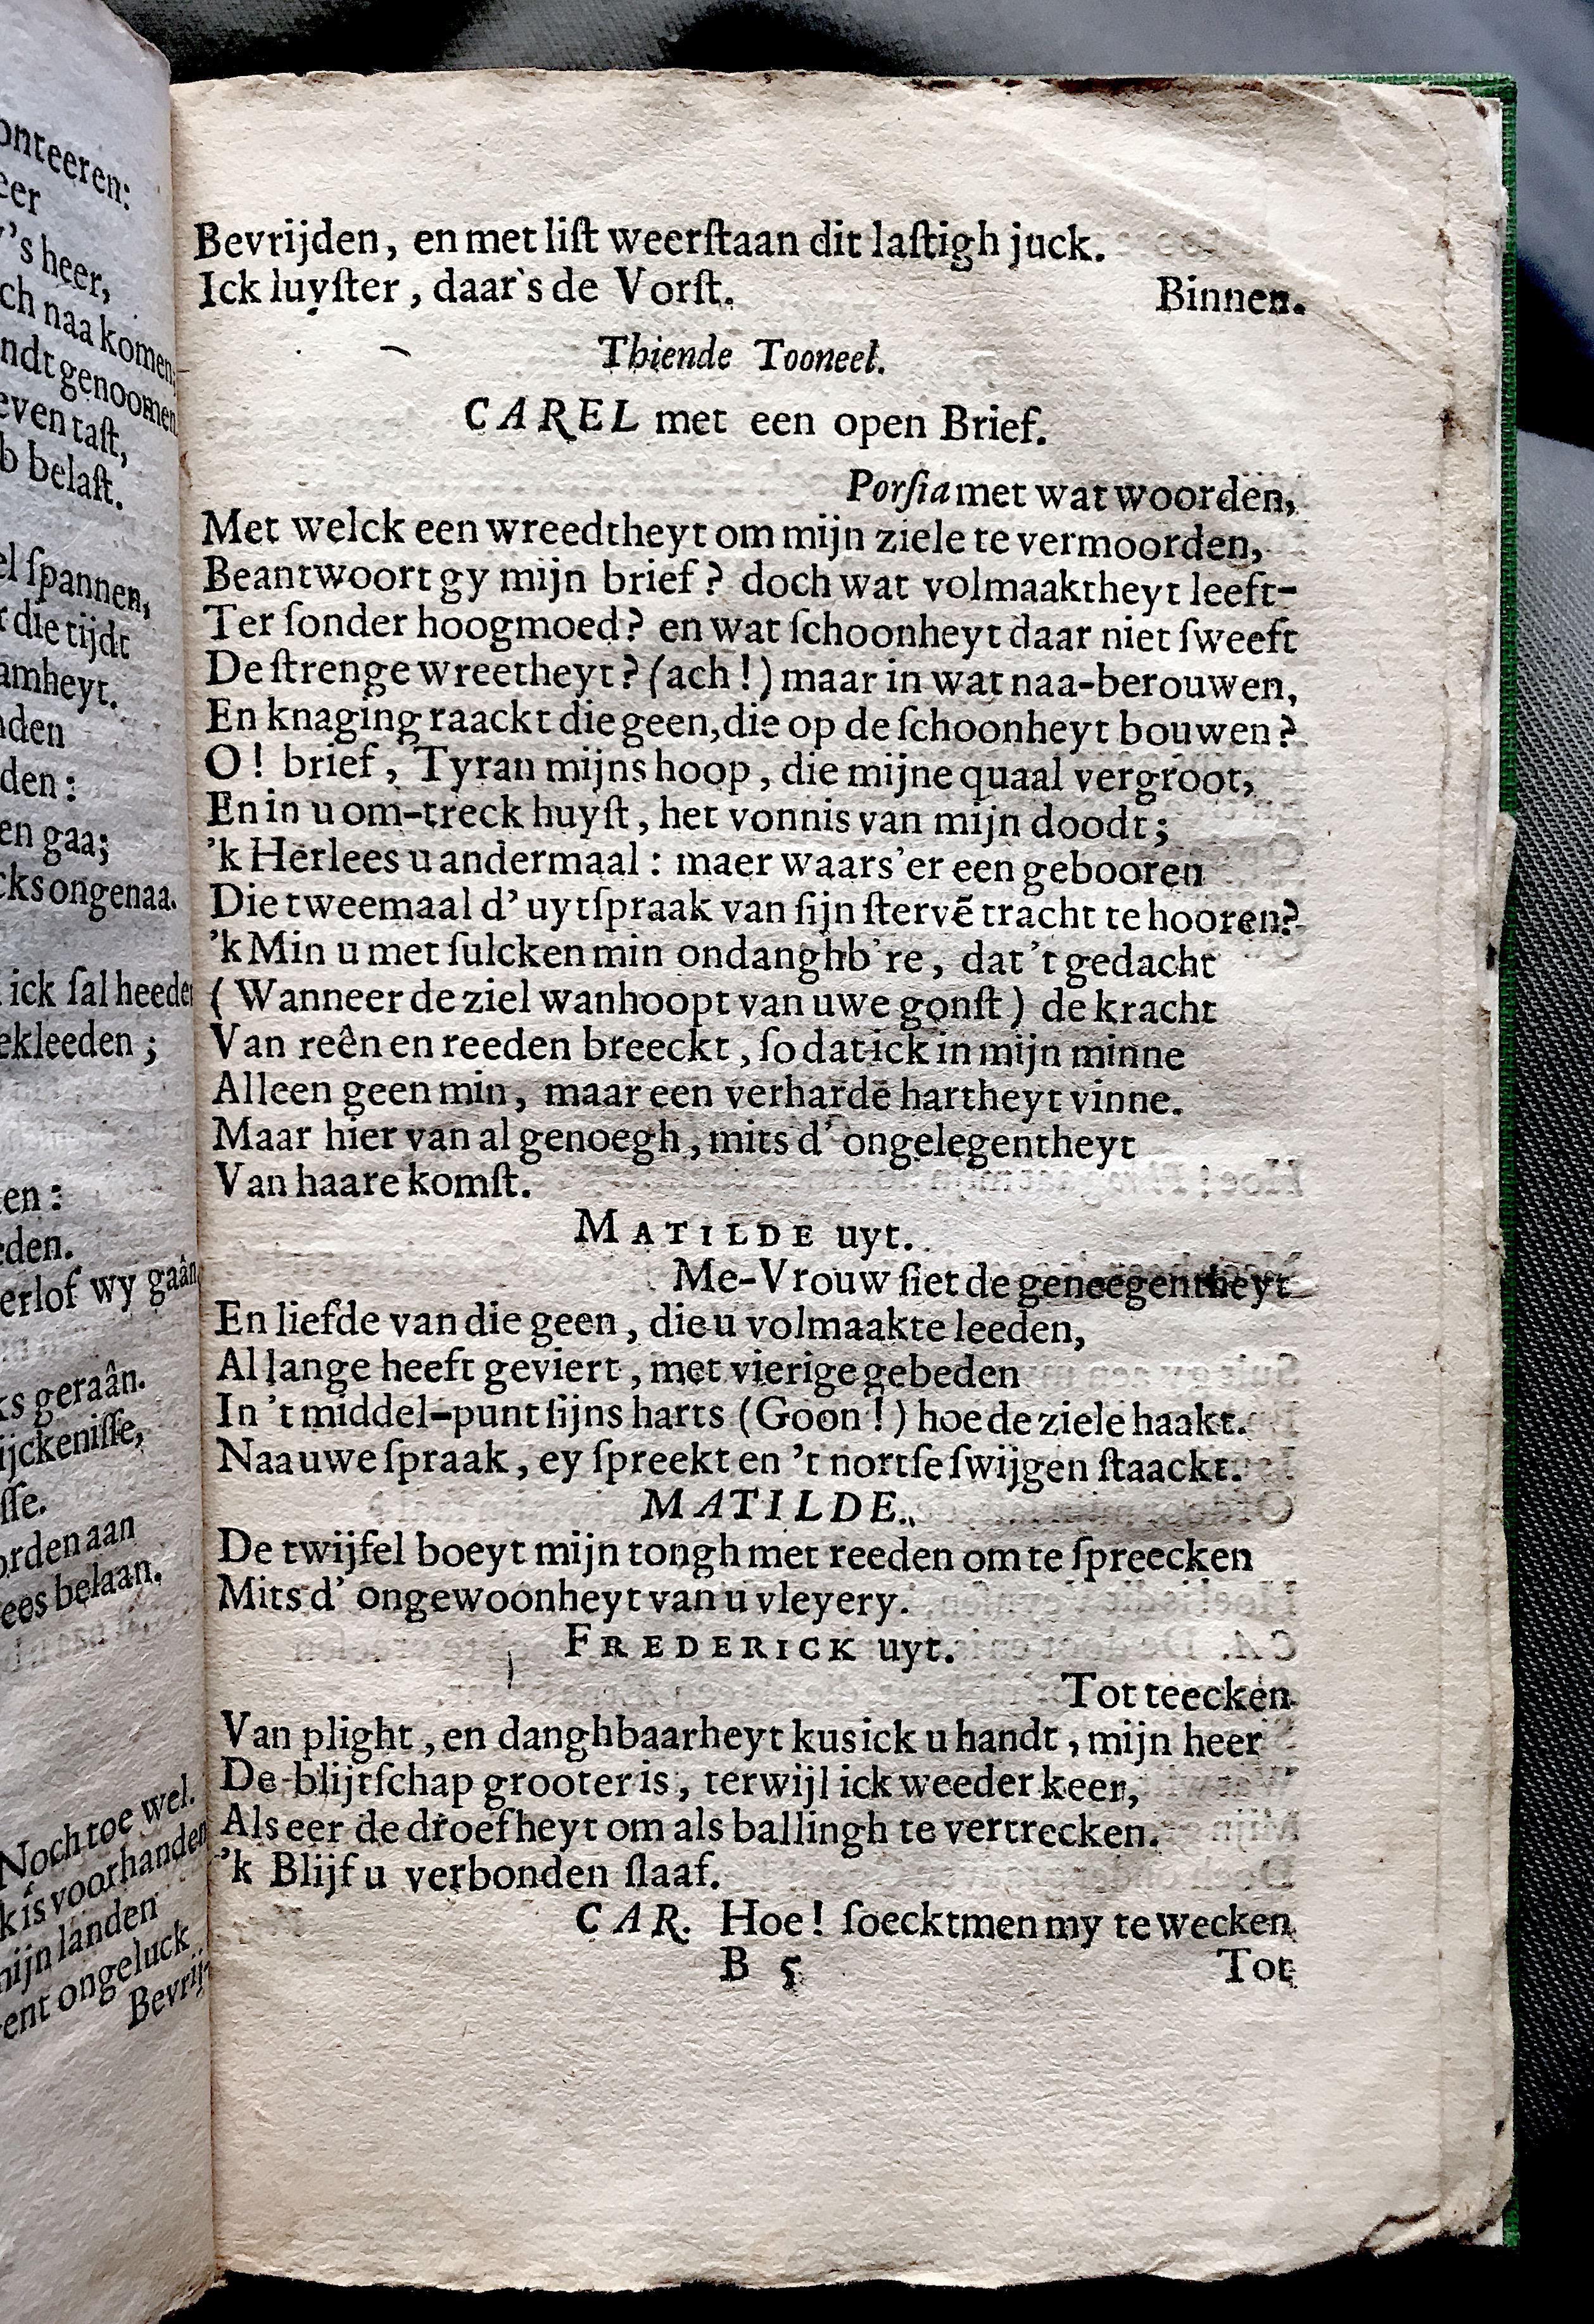 onteeren:
eer
y's heer,
ch naa komen,
ndt genoomen
even taſt,
b belaſt.
el ſpannen,
r die tijdt
amheyt.
nden
den:
en gaa;
cks ongenaa.
ick ſal heeden
ekleeden;
en:
eden.
erlof wy gaân
ks geraân.
ijckeniſſe,
ſſe.
orden aan
ees belaan.
Noch toe wel.
k is voorhanden
mijn landen
ent ongeluck
Bevrij-
Bevrijden, en met liſt weerſtaan dit laſtigh juck.
Ick luyſter, daar's de Vorſt. Binnen.
Thiende Tooneel.
CAREL met een open Brief.
Porſia met wat woorden,
Met welck een wreedtheyt om mijn ziele te vermoorden,
Beantwoort gy mijn brief? doch wat volmaaktheyt leeft-
Ter ſonder hoogmoed? en wat ſchoonheyt daar niet ſweeft
De ſtrenge wreetheyt? (ach!) maar in wat naa-berouwen,
En knaging raackt die geen, die op de ſchoonheyt bouwen?
O! brief, Tyran mijns hoop, die mijne quaal vergroot,
En in u om-treck huyſt, het vonnis van mijn doodt;
'k Herlees u andermaal: maer waars'er een gebooren
Die tweemaal d' uytſpraak van ſijn ſtervē tracht te hooren?
'k Min u met ſulcken min ondanghb're, dat 't gedacht
(Wanneer de ziel wanhoopt van uwe gonſt) de kracht
Van reên en reeden breeckt, ſo dat ick in mijn minne
Alleen geen min, maar een verhardē hartheyt vinne.
Maar hier van al genoegh, mits d' ongelegentheyt
Van haare komſt.
MATILDE uyt.
Me-Vrouw ſiet de geneegentheyt
En liefde van die geen, die u volmaakte leeden,
Al lange heeft geviert, met vierige gebeden
In 't middel-punt ſijns harts (Goon!) hoe de ziele haakt.
Naa uwe ſpraak, ey ſpreekt en 't nortſe ſwijgen ſtaackt.
MATILDE.
De twijfel boeyt mijn tongh met reeden om te ſpreecken
Mits d' ongewoonheyt van u vleyery.
FREDERICK uyt.
Tot teecken
Van plight, en danghbaarheyt kus ick u handt, mijn heer
De blijtſchap grooter is, terwijl ick weeder keer,
Als eer de droefheyt om als ballingh te vertrecken.
'k Blijf u verbonden ſlaaf.
CAR. Hoe! ſoeckt men my te wecken
B 5 Tot